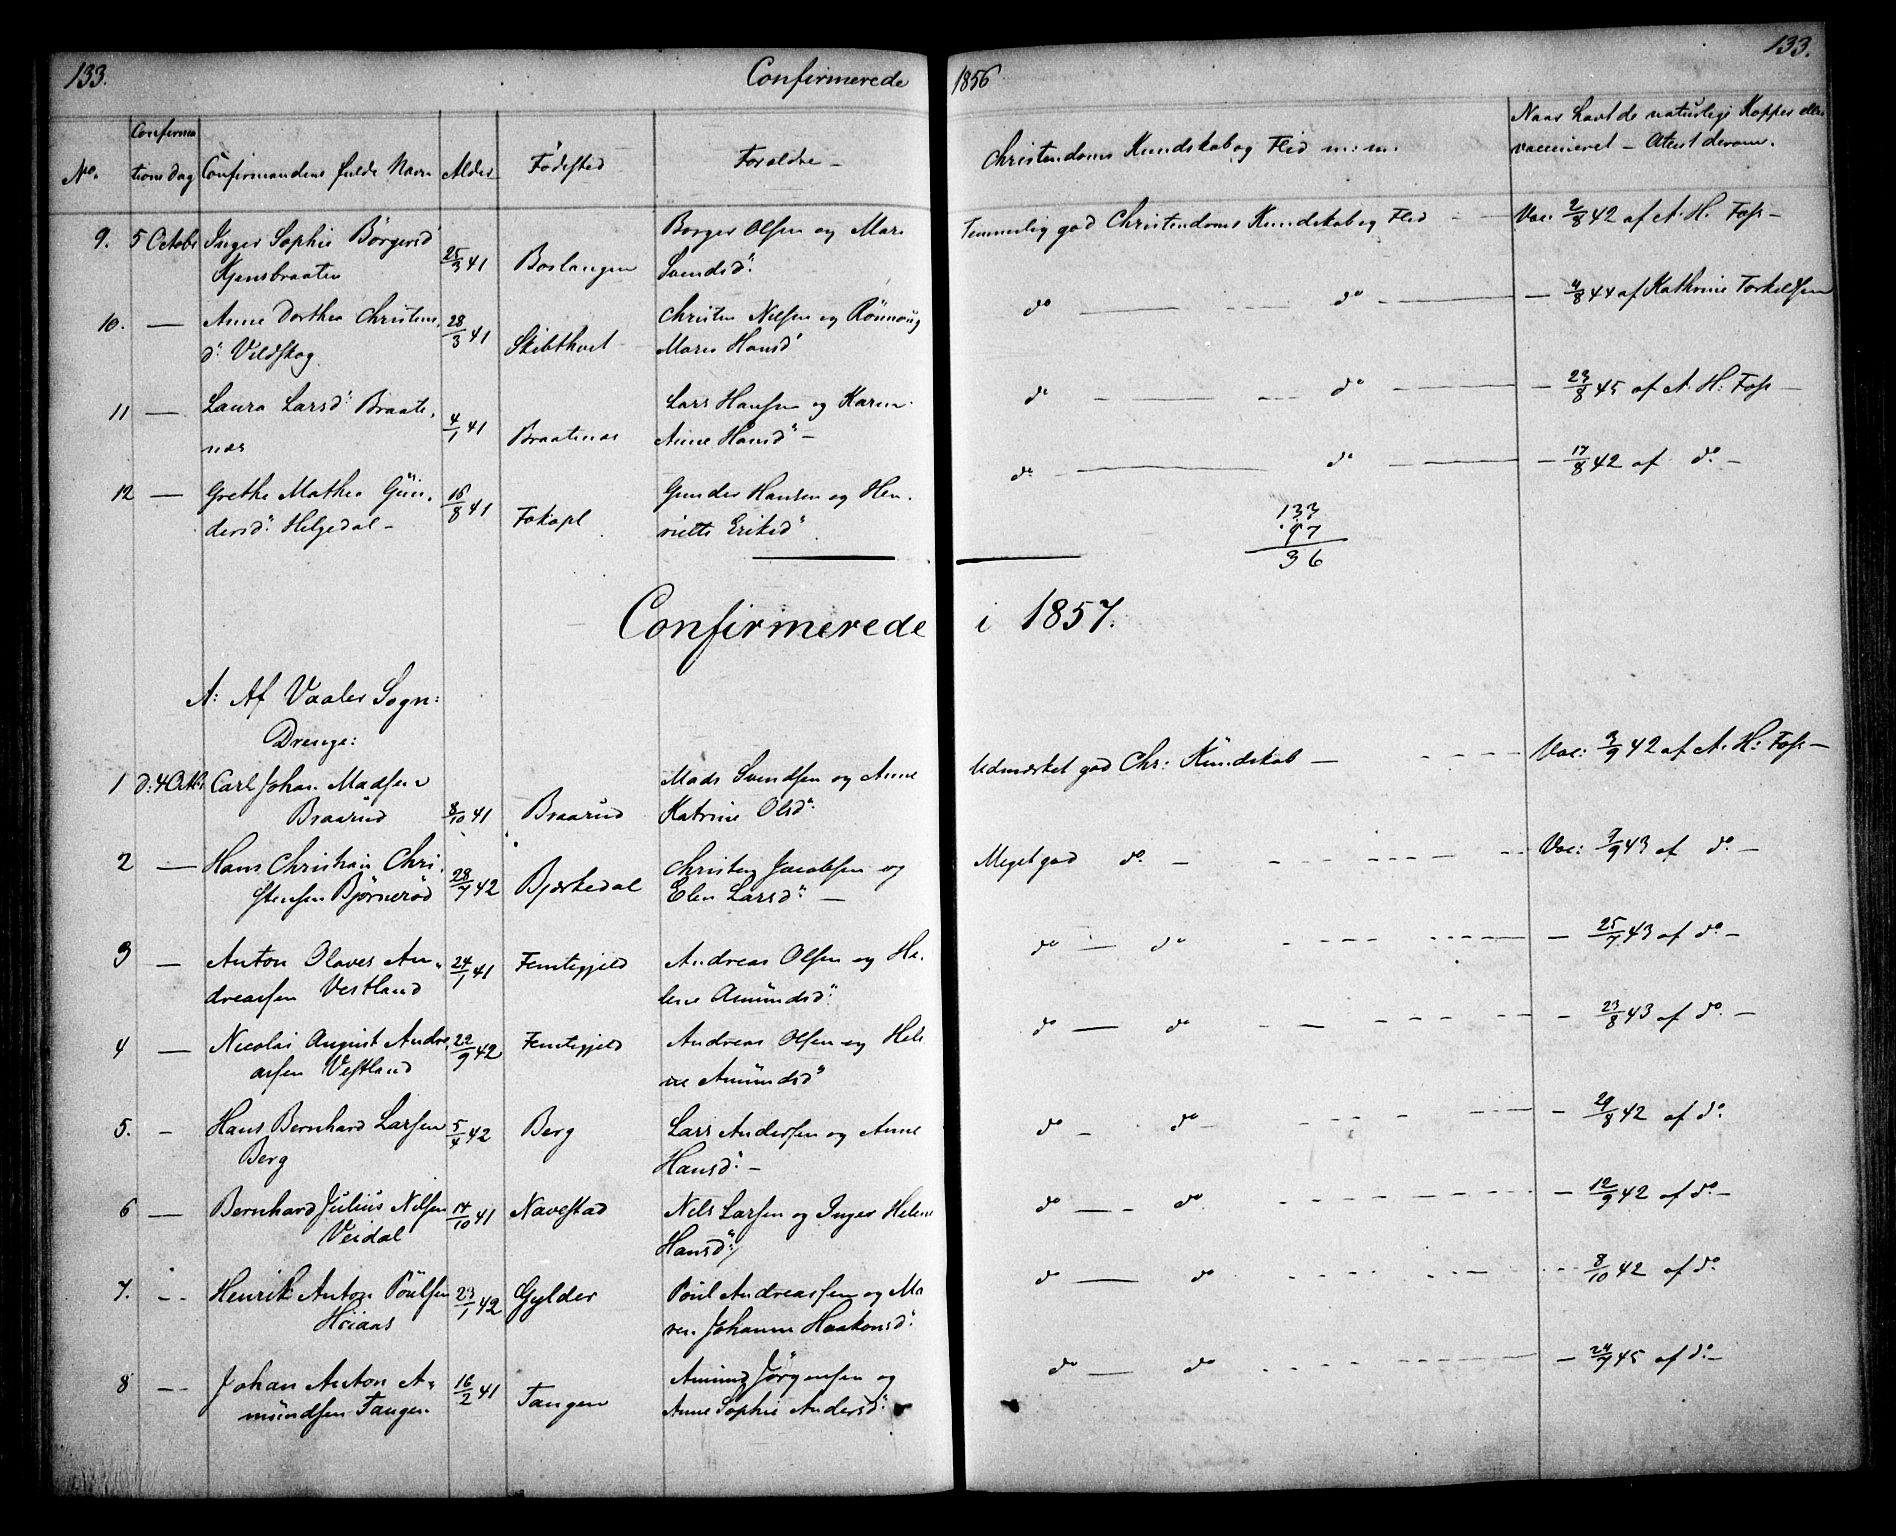 133. Confirmerede 1856 133.
No. Confirmationsdag Confirmandens fulde Navn Alder Fødested Forældre – Christendoms Kundskab og Flid m: m. Naar havt de naturlige Kopper eller vaccineret – Attest derom.
9. 5 Octobr Inger Sophie Börgersd: 25/3 41 Boslangen Borger Olsen og Mari Temmelig god Christendoms Kundskab og Flid Vac: 2/8 42 af A. H. Foss –
Kjensbraaten Svendsd:
10. — Anne Dorthea Christens. 28/3 41 Skibthvet Christen Nilsen og Rönnoug do — do — – 4/8 44 af Kathrine Torkelsen
d: Vildskog Maria Hansd:
11 — Laura Larsd: Braate. 4/1 41 Braatenas Lars Hansen og Karen do — do — – 23/8 45 af A. H: Foss –
nes Anne Hansd: –
12 — Grethe Mathea Gün. 16/8 41 Fokopl Gunder Hansen og Hen. do — do — – 17/8 42 af do –
dersd: Helgedal – riette Eriksd:
133
97
36
Confirmerede i 1857.
A: Af Vaaler Sogn:
Drenge:
1 d: 4 Octbr Carl Johan Madsen 8/10 41 Braarud Mads Svendsen og Anne Udmærket god Chr: Kundskab — Vac: 3/9 42 af A. H: Foss. –
Braarud Katrine Olsd:
2 — Hans Christian Chri. 28/7 42 Bjerkedal Christen Jacobsen og Meget god do. – Vac: 7/9 43 af do. –
stensen Björneröd Elen Larsd: —
3 — Anton Olaves An. 24/1 41 Femtegjeld Andreas Olsen og He. do — do – 25/7 43 af do –
dreassen Vestland lene Amündsd:
4 — Nicolai August Andre 22/9 42 Femtegjeld Andreas Olsen og Hele do — do – 23/8 43 af do. –
assen Vestland ne Amündsd:
5. – Hans Bernhard Larsen 5/4 42 Berg Lars Andersen og Anne do – do – – 29/8 42 af do.
Berg Hansd: –
6 — Bernhard Julius Nilsen 14/10 41 Navestad Nels Larsen og Inger Helene do — do – 12/9 42 af do –
Veidal Hansd:
7. – Henrik Anton Poülsen 23/1 42 Gylder Poül Andreassen og Ma do — do 8/10 42 af do.
Höiaas ren Johanne Haakonsd:
8 — Johan Anton A. 16/2 41 Tangen Amund Jörgensen og do — do – 24/7 45 af do –
mündsen Tangen Anne Sophie Andersd: